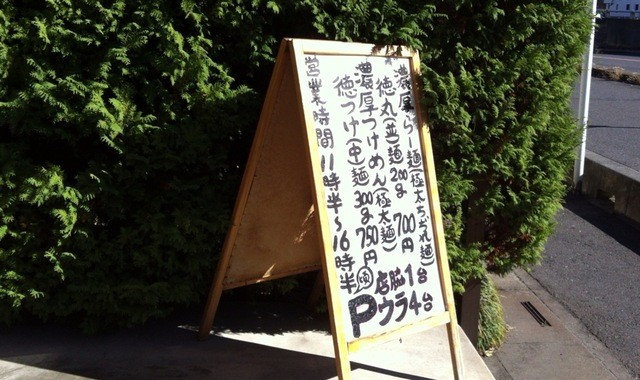 濃厚らー麺(極太ちぢれ麺)
徳丸(並)麺200g 700円
濃厚つけめん(極太麺)
徳つけ(中)麺300g 750円
営業時間11時半〜16時半
P店脇1台
ウラ4台